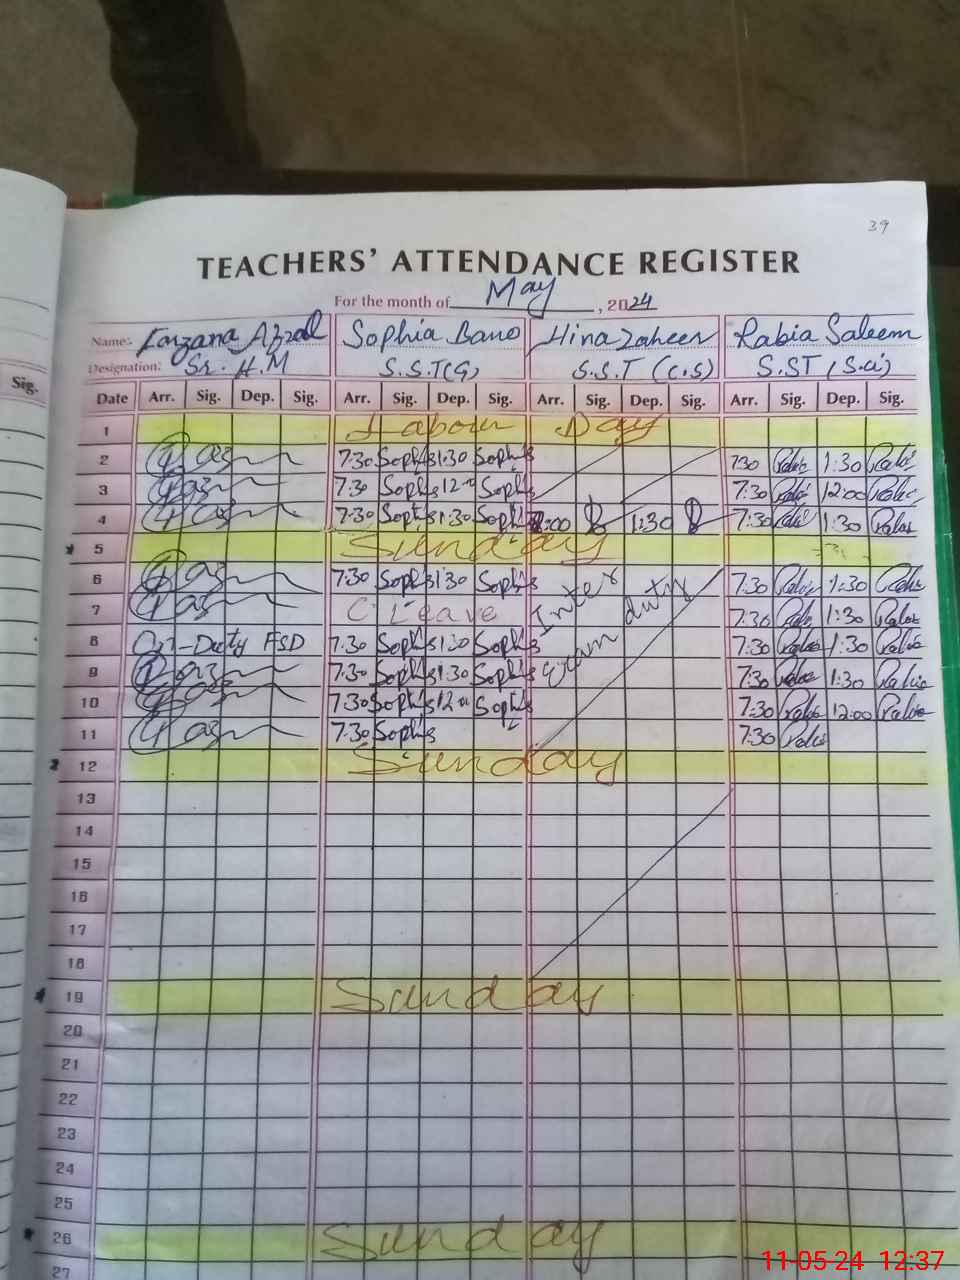 39
TEACHERS' ATTENDANCE REGISTER
For the month of May, 2024
Name:- Farzana Afzal Sophia Bano Hina Zaheer Rabia Saleem
Designation:- Sr. H.M S.S.T(G) S.S.T (C.S) S.ST (Sci)
Sig. Date Arr. Sig. Dep. Sig. Arr. Sig. Dep. Sig. Arr. Sig. Dep. Sig. Arr. Sig. Dep. Sig.
1 Labour Day
2 7:30 Sophia 1:30 Sophia 7:30 1:30
3 7:30 Sophia 12:00 Sophia 7:30 12:00
4 7:30 Sophia 1:30 Sophia :00 1:30 7:30 1:30
5 Sunday
6 7:30 Sophia 1:30 Sophia Inter 7:30 1:30
7 C Leave duty 7:30 1:30
8 On-Duty FSD 7:30 Sophia 1:30 Sophia 7:30 1:30
9 7:30 Sophia 1:30 Sophia Exam 7:30 1:30
10 7:30 Sophia 12:00 Sophia 7:30 12:00
11 7:30 Sophia 7:30
12 Sunday
13
14
15
16
17
18
19 Sunday
20
21
22
23
24
25
26 Sunday
27
11-05-24 12:37